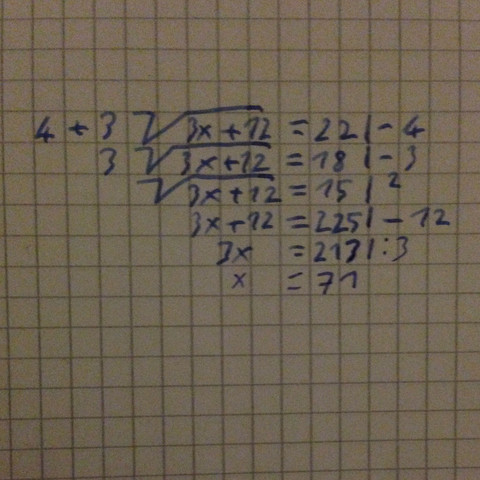 4 + 3 √(3x + 12) = 22 | - 4
3 √(3x + 12) = 18 | - 3
√(3x + 12) = 15 | ²
3x + 12 = 225 | - 12
3x = 213 | : 3
x = 71